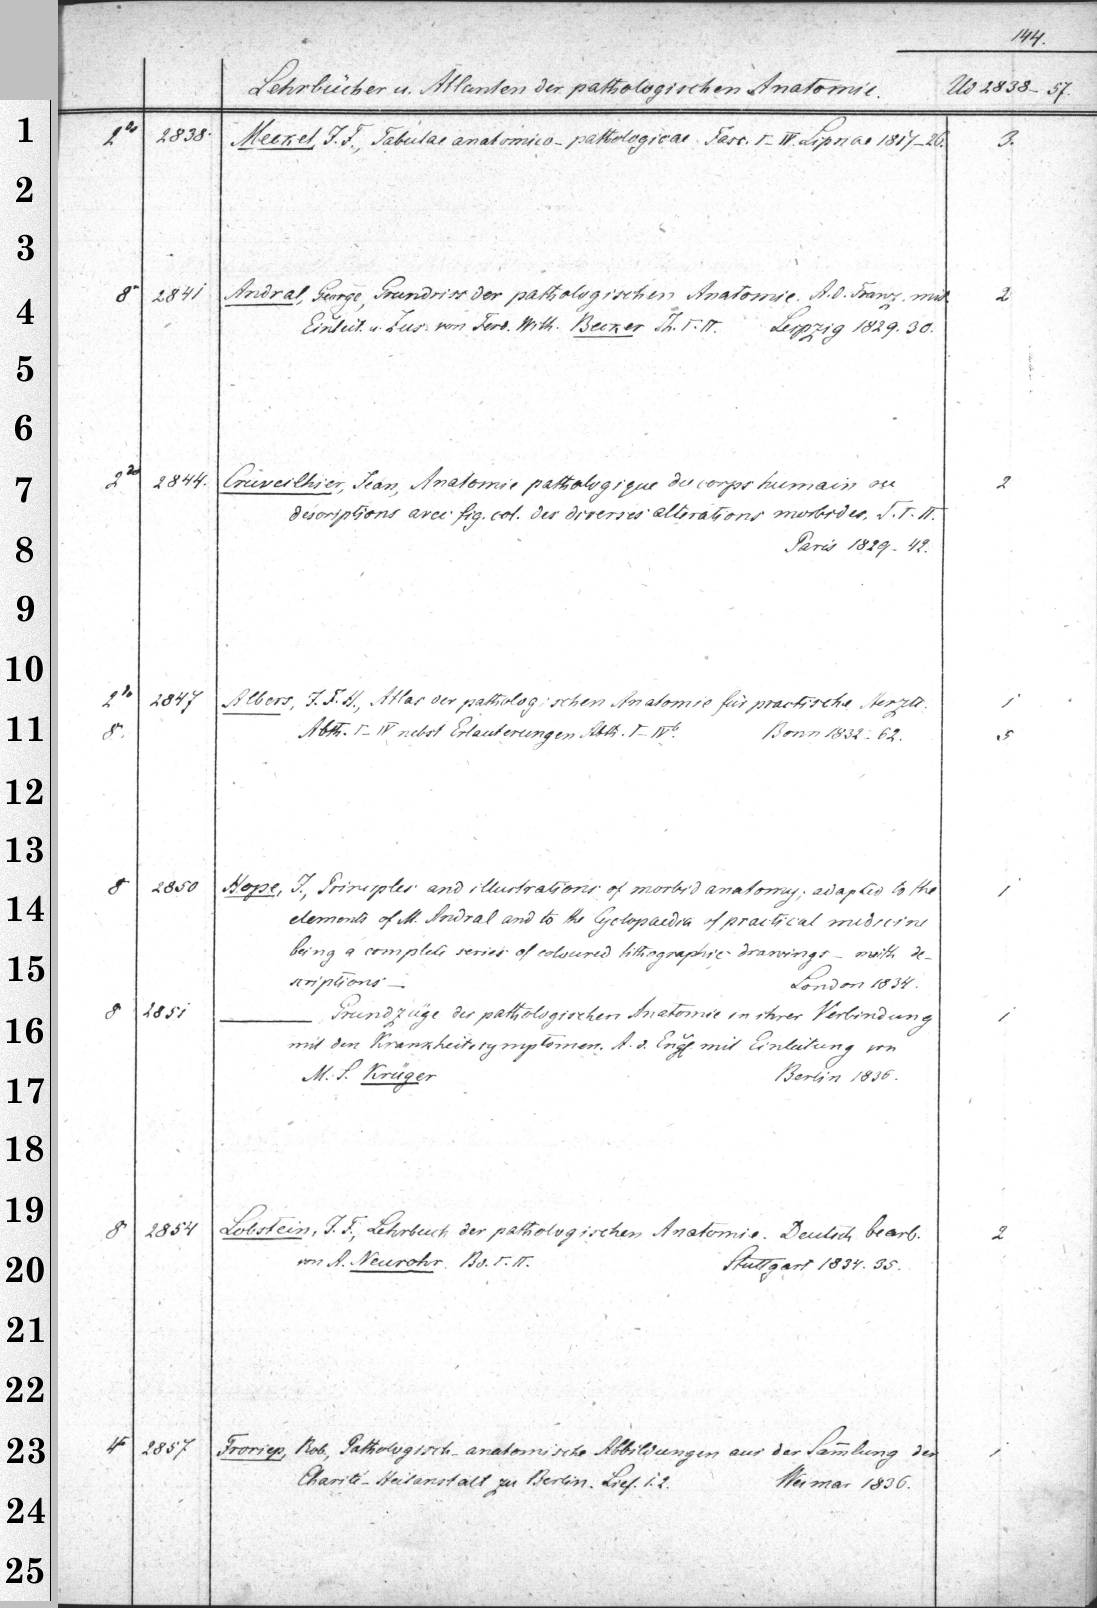 144.
Lehrbücher u. Atlanten der pathologischen Anatomie. Ud 2838-57.
1
2
3
4
5
6
7
8
9
10
11
12
13
14
15
16
17
18
19
20
21
22
23
24
25
2º 2838. Meckel, J. F., Tabulae anatomico-pathologicae Fasc. I-IV. Lipsiae 1817-26. 3.
8º 2841 Andral, George, Grundriss der pathologischen Anatomie. A. d. Franz. mit 2
Einleit. u. Zus. von Ferd. Wilh. Becker Th. I. II. Leipzig 1829. 30.
2º 2844. Cruveilhier, Jean, Anatomie pathologique du corps humain ou 2
descriptions avec fig. col. des diverses alterations morbides. T. I. II.
Paris 1829-42.
2º 2847 Albers, J. F. H., Atlas der pathologischen Anatomie für practische Aerzte. 1
8º. Abth. I-IV nebst Erlauterungen Abth. I-IVb. Bonn 1832-62. 5
8 2850 Hope, J., Principles and illustrations of morbid anatomy; adapted to the 1
elements of M. Andral and to the Cyclopaedia of practical medicine
being a complete series of coloured lithographic drawings - with de-
scriptions — London 1834.
8 2851 ——— Grundzüge der pathologischen Anatomie in ihrer Verbindung 1
mit den Krankheitssymptomen. A. d. Engl mit Einleitung von
M. S. Krüger Berlin 1836.
8 2854 Lobstein, J. F., Lehrbuch der pathologischen Anatomie. Deutsch bearb. 2
von A. Neurohr. Bd. I. II. Stuttgart 1834. 35.
4º 2857 Froriep, Rob., Pathologisch-anatomische Abbildungen aus der Sam̄lung der 1
Charité-Heilanstalt zu Berlin. Lief. 1. 2. Weimar 1836.